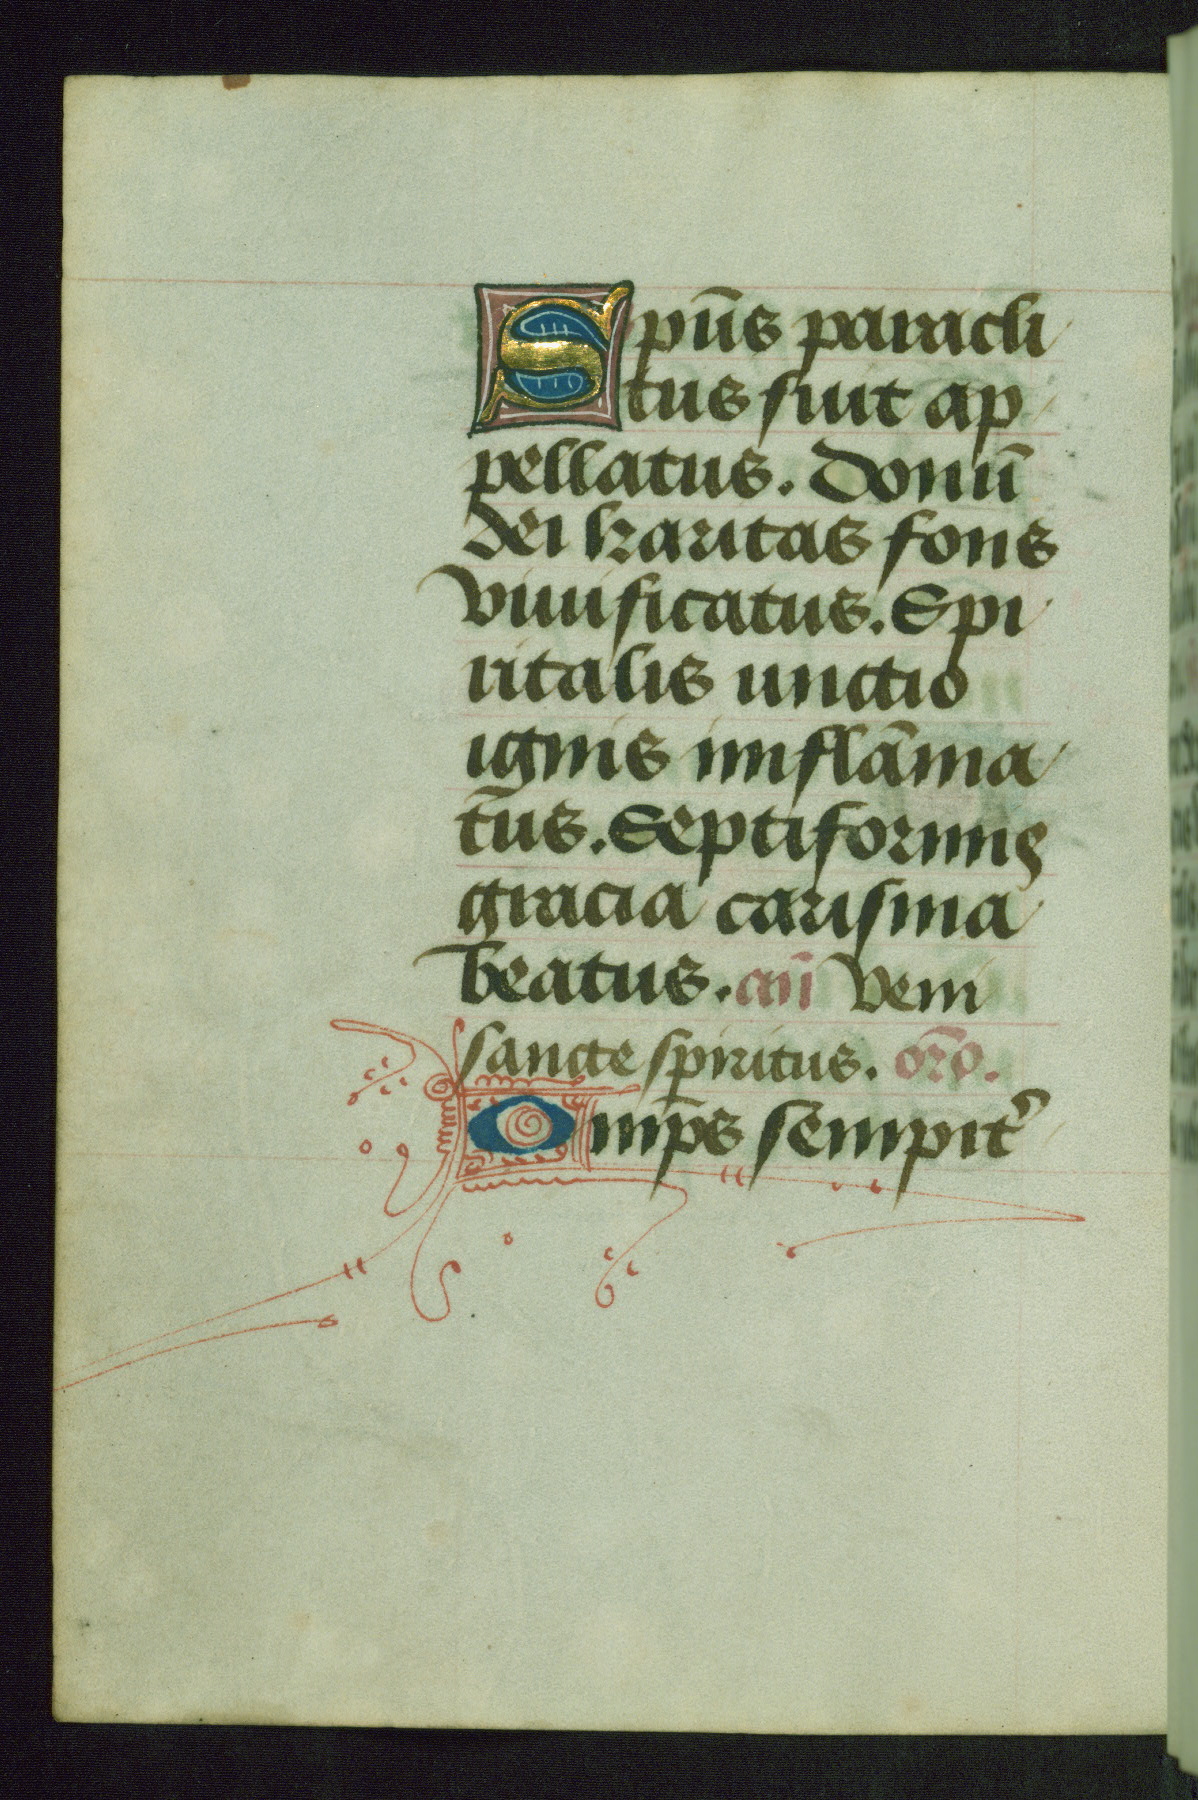 Spūs paracli
tus fuit ap
pellatus. Donū
dei karitas fons
viuificatus. Spi
ritalis unctio
ignis imflāma
tus. Septiformis
gracia carisma
beatus. añ Veni
sancte spiritus. orō.
Omp̄s sempit᷑